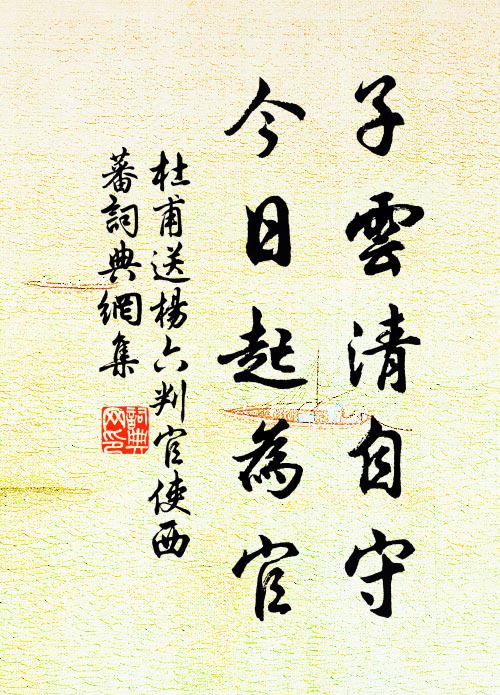 子雲清自守
今日起為官
杜甫送楊六判官使西
蕃詞典網集
詞典
网印